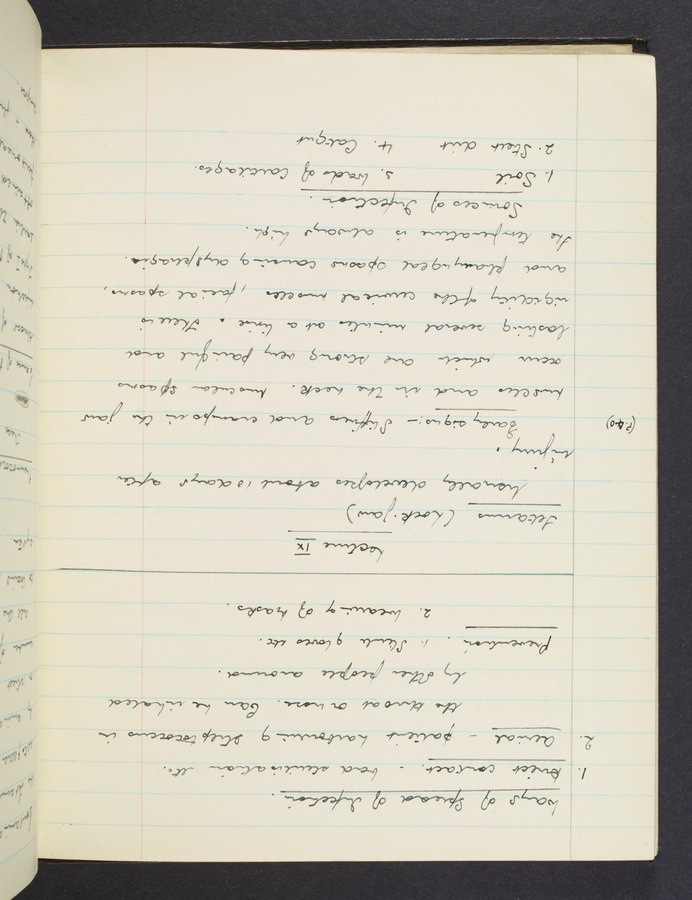 Ways of Spread of Infection.
1. Direct contact. - bad sterilisation etc.
2. Aerial - patient harbouring streptococcus in
the throat or nose. Can be inhaled
by other people around.
Prevention. 1. Sterile gloves etc.
2. Wearing of masks.
Lecture IX
Tetanus (Lock-jaw)
Usually developes about 10 days after
injury.
(P.40) Early signs:- Stiffness and cramps in the jaw
muscles and in the neck. Muscular spasms
occur which are strong very painful and
lasting several minutes at a time. There is
rigidity of the cervical muscles, facial spasm,
and pharyngeal spasms causing dysphagia.
the temperature is always high.
Sources of Infection.
1. Soil 3. Wads of Cartridges.
2. Street dirt 4. Catgut